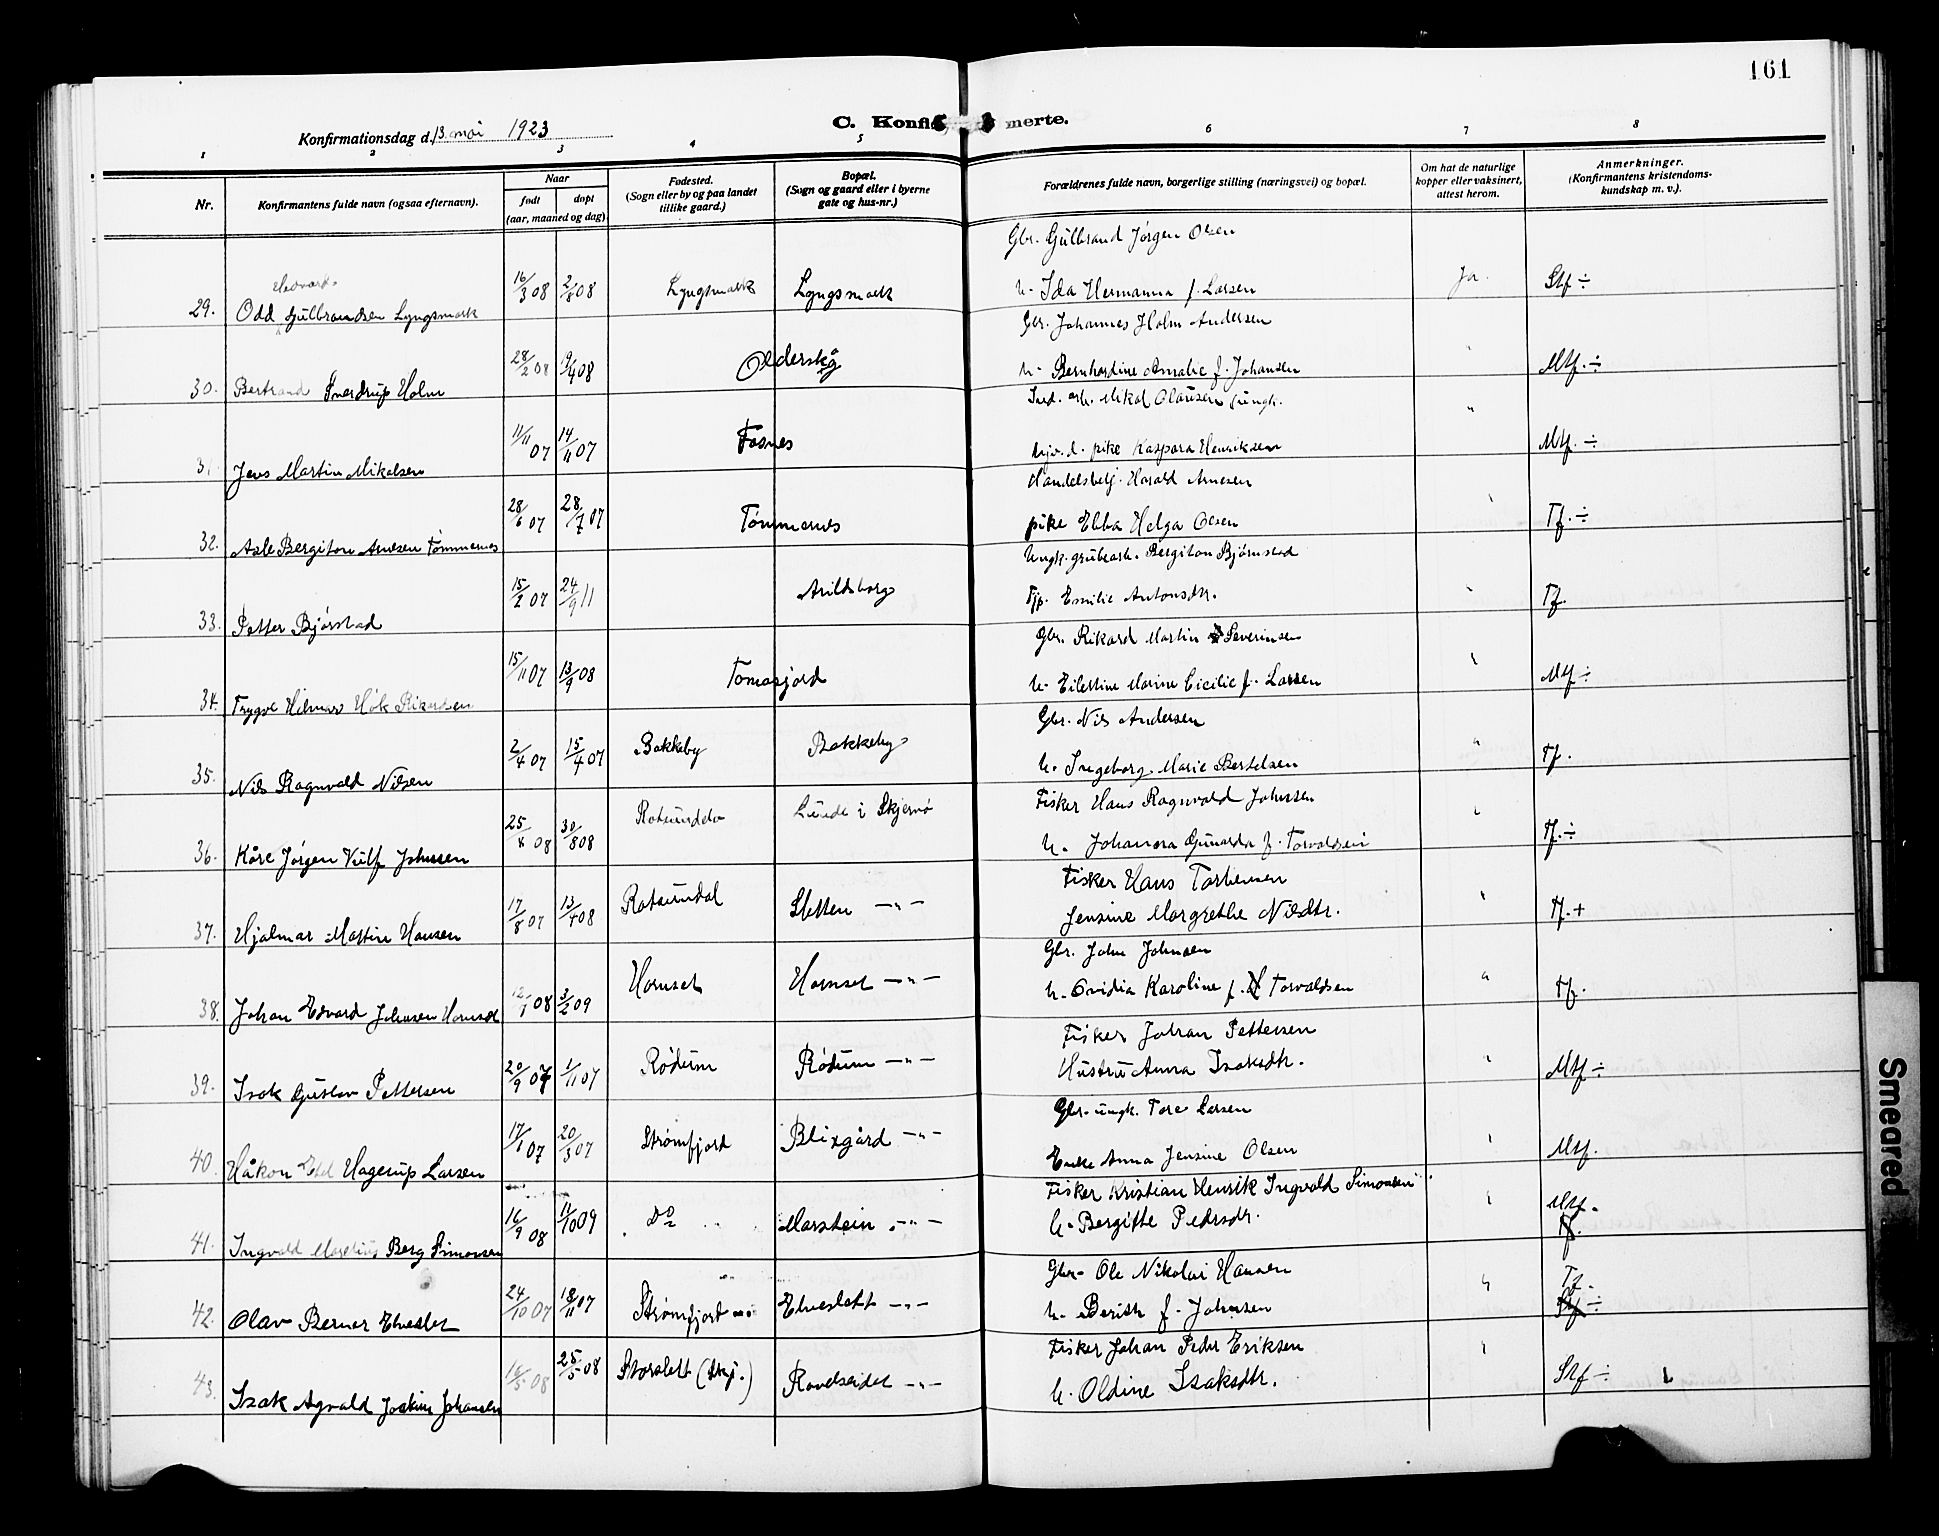 161
Konfirmationsdag d. 13. mai 1923
C. Konfi merte.
1 2 3 4 5 6 7 8
Nr.
Konfirmantens fulde navn (ogsaa efternavn).
Naar
født
døpt
(aar, maaned og dag)
Fødested.
(Sogn eller by og paa landet
tillike gaard.)
Bopæl.
(Sogn og gaard eller i byerne
gate og hus-nr.)
Forældrenes fulde navn, borgerlige stilling (næringsvei) og bopæl.
Om hat de naturlige
kopper eller vaksinert,
attest herom.
Anmerkninger.
(Konfirmantens kristendoms-
kundskap m. v.).
Gbr. Gulbrand Jørgen Olsen
29. Odd Gulbrandsen Lyngsmark 16/3 08 2/8 08 Lyngsmark Lyngsmark h. Ida Hermanna f. Larsen Ja. Stf ÷
Gbr. Johannes Holm Andersen
30. Bertrand Sverdrup Holm 28/2 08 9/4 08 Olderskog h. Bernhardine Amalie f. Johansen " Mtf. ÷
Ind. arb. Mikal Olausen ungk.
31. Jens Martin Mikalsen 11/11 07 14/11 07 Fosnes pike Kaspara Henriksen " Mtf. ÷
Handelsbetj. Harald Arnesen
32. Asle Bergiton Arnesen Tømmernes 28/6 07 28/7 07 Tømmernes pike Ebba Helga Olsen " Tf. ÷
Ungk. grubearb. Bergiton Bjørnstad
33. Petter Bjørstad 15/2 07 24/9 11 Arildsborg Tjp. Emilie Antonsdtr. " Tf.
Gbr. Rikard Martin Severinsen
34. Trygve Hilmar Høk Rikardsen 15/11 07 13/9 08 Tomasjord h. Eilertine Marine Cicilie f. Larsen " Mtf ÷
Gbr. Nils Andersen
35. Nils Ragnvald Nilsen 2/4 07 15/4 07 Bakkeby Bakkeby h. Ingeborg Marie Bertelsen " Tf.
Fisker Hans Ragnvald Johnsen
36. Kåre Jørgen Vulf Johnsen 25/4 08 30/8 08 Rotsundelv Lunde i Skjervø h. Johanora Gunalda f. Torvaldsen " Tf. ÷
Fisker Hans Torbensen
37. Hjalmar Martin Hansen 17/8 07 13/4 08 Rotsundal Sletten — " — Jensine Margrethe Nilsdtr. " Tf. +
Gbr. John Johnsen
38. Johan Edvard Johnsen Hamset 12/1 08 3/2 09 Hamset Hamset — " — h. Ovidia Karoline f. Torvaldsen " Tf.
Fisker Johan Pettersen
39. Isak Gustav Pettersen 20/9 07 1/11 07 Rødum Rødum — " — Hustru Anna Isaksdtr. " Mtf ÷
Gbr. ungk. Tore Larsen
40. Håkon Hagerup Larsen 17/1 07 20/3 07 Strømfjord Blixgård — " — Enke Anna Jensine Olsen " Mtf.
Fisker Kristian Henrik Ingvald Simonsen
41. Ingvald Berg Simonsen 16/9 08 11/10 09 Do Marstein — " — h. Bergitte Pedrsdtr. " Mtf.
Tf.
Gbr. Ole Nikolai Hansen
42. Olav Berner Elveslet 24/10 07 18/11 07 Strømfjord Elveslett — " — h. Berith f. Johnsen " Tf.
÷
Fisker Johan Peder Eriksen
43. Isak Agvald Joakim Johansen 16/5 08 25/5 08 Storslett (Skj.) Ravelseidet — " — h. Oldine Isaksdtr. " Stf ÷
Smeared